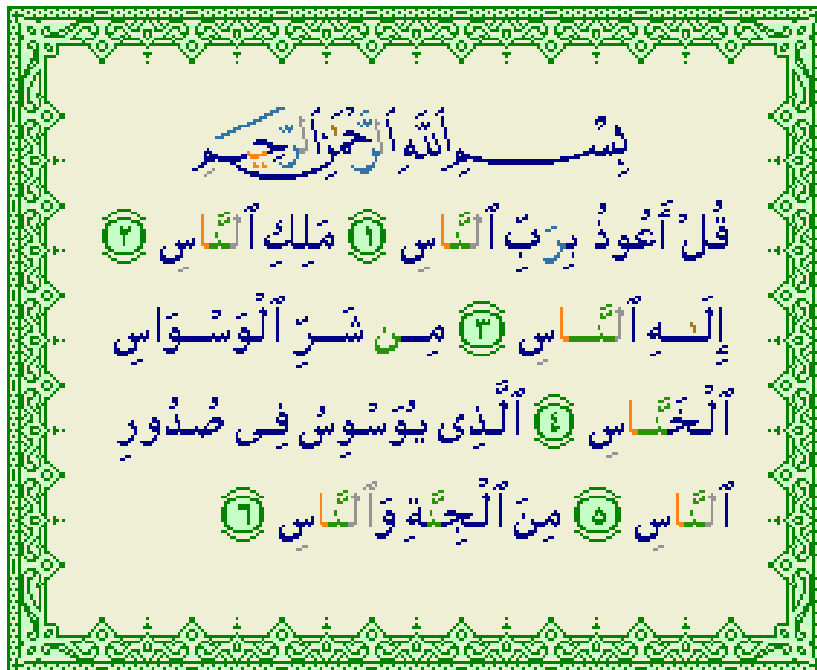 بِسْمِ ٱللَّهِ ٱلرَّحْمَٰنِ ٱلرَّحِيمِ
قُلْ أَعُوذُ بِرَبِّ ٱلنَّاسِ ١ مَلِكِ ٱلنَّاسِ ٢
إِلَٰهِ ٱلنَّاسِ ٣ مِن شَرِّ ٱلْوَسْوَاسِ
ٱلْخَنَّاسِ ٤ ٱلَّذِى يُوَسْوِسُ فِى صُدُورِ
ٱلنَّاسِ ٥ مِنَ ٱلْجِنَّةِ وَٱلنَّاسِ ٦